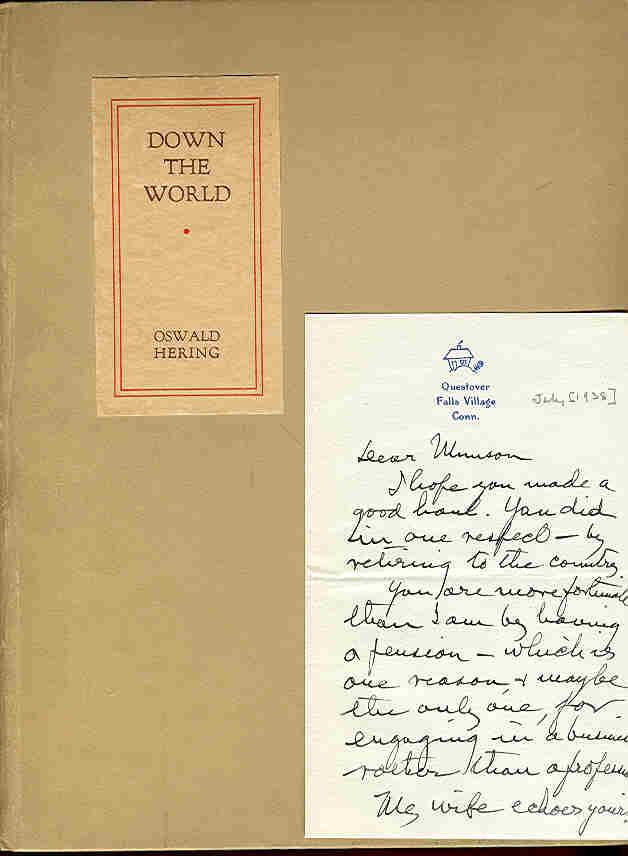 DOWN
THE
WORLD
OSWALD
HERING
Questover
Falls Village
Conn.
July [1938]
Dear Munson
I hope you made a
good haul. You did
in one respect – by
retiring to the country
You are more fortunate
than I am by having
a pension – which is
one reason, & maybe
the only one, for
engaging in a busin
rather than a profess
My wife echoes your